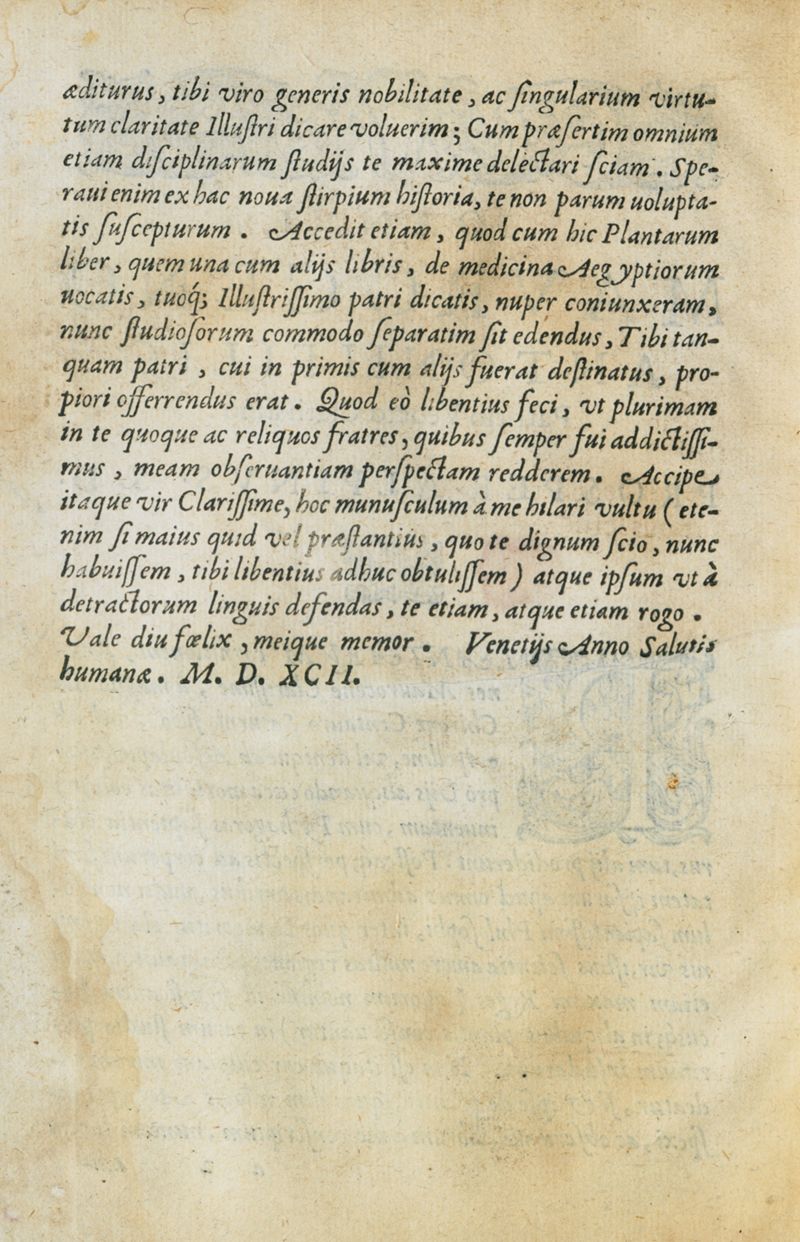 æditurus, tibi viro generis nobilitate, ac ſingularium virtu-
tum claritate Illuſtri dicare voluerim; Cum præſertim omnium
etiam diſciplinarum ſtudijs te maxime delectari ſciam. Spe-
raui enim ex hac noua ſtirpium hiſtoria, te non parum uolupta-
tis ſuſcepturum. Accedit etiam, quod cum hic Plantarum
liber, quem una cum alijs libris, de medicina Aegyptiorum
uocatis, tuoq́; Illuſtriſſimo patri dicatis, nuper coniunxeram,
nunc ſtudioſorum commodo ſeparatim ſit edendus, Tibi tan-
quam patri, cui in primis cum alijs fuerat deſtinatus, pro-
piori offerrendus erat. Quod eò libentius feci, vt plurimam
in te quoque ac reliquos fratres, quibus ſemper fui addictiſſi-
mus, meam obſeruantiam perſpectam redderem. Accipe
itaque vir Clariſſime, hoc munuſculum à me hilari vultu (ete-
nim ſi maius quid vel præſtantius, quo te dignum ſcio, nunc
habuiſſem, tibi libentius adhuc obtuliſſem) atque ipſum vt à
detractorum linguis defendas, te etiam, atque etiam rogo.
Vale diu fœlix, meique memor. Venetijs Anno Salutis
humanæ. M. D. XCII.